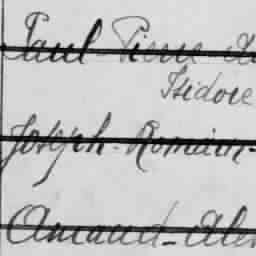 Paul-Pierre-A
Isidore
Joseph-Romain-
Amand-Alex